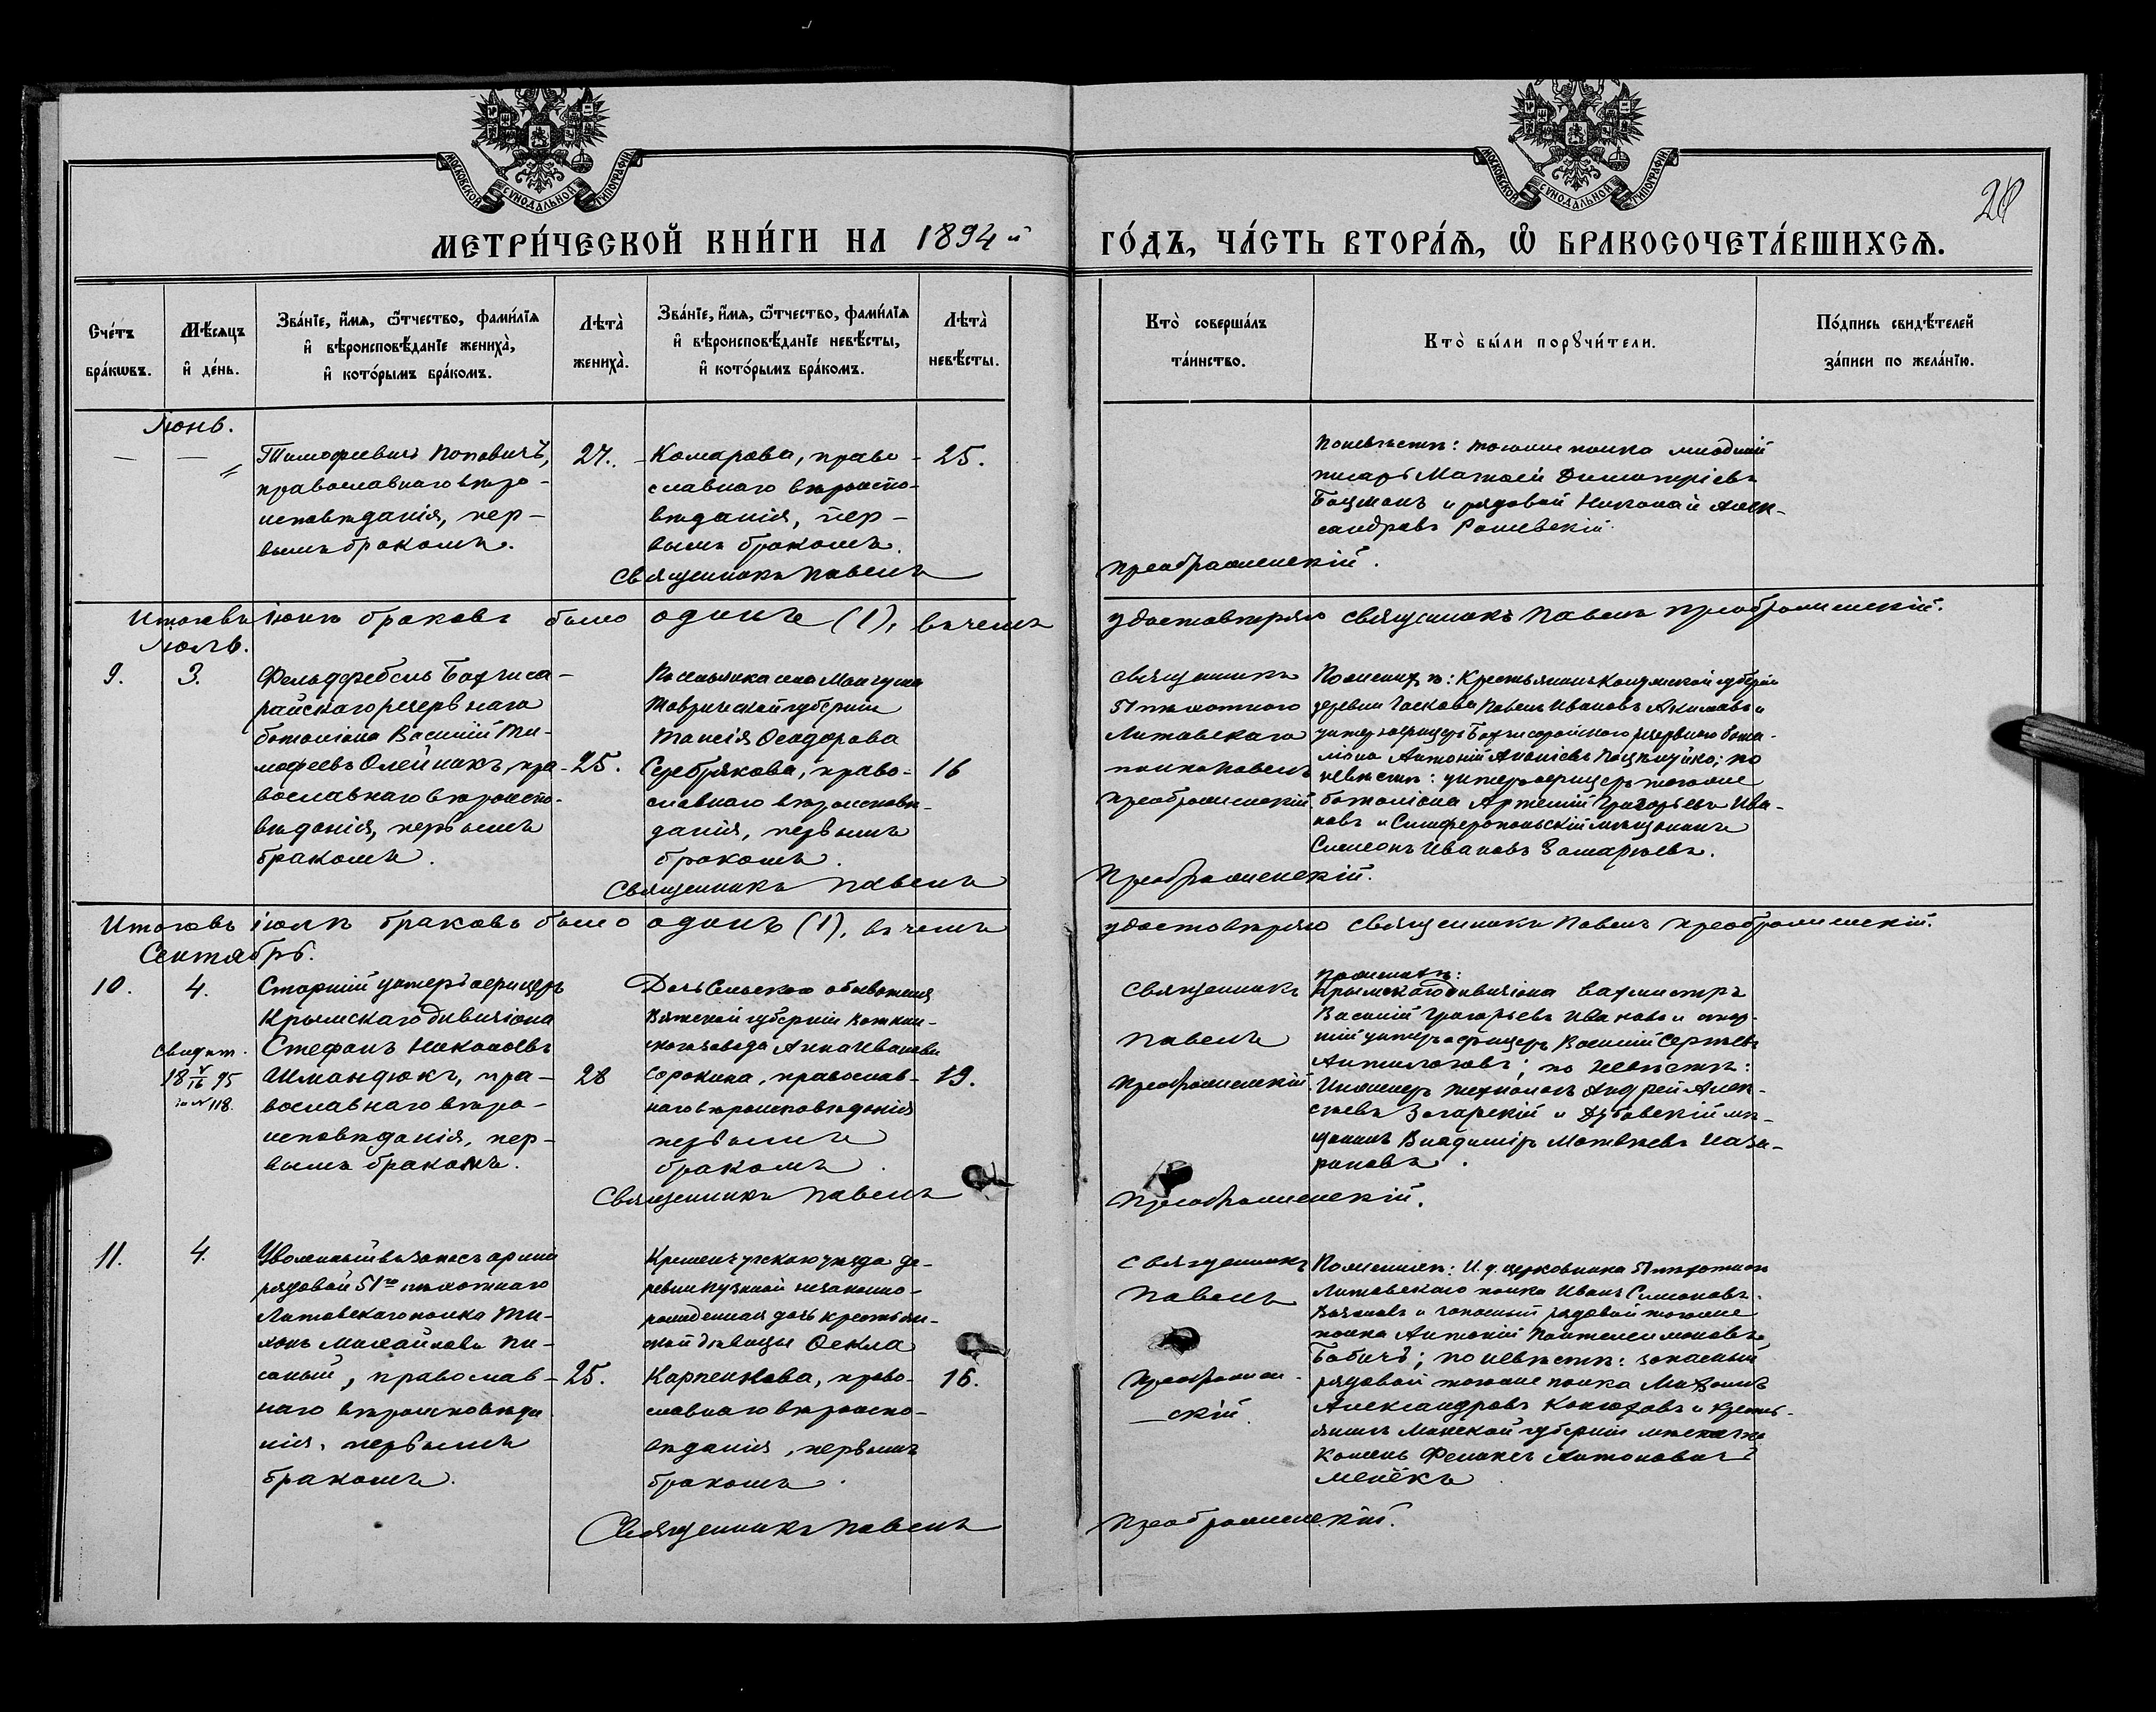 МОСКОВСКОЙ СѴНОДАЛЬНОЙ ТИПОГРАФІИ.
МОСКОВСКОЙ СѴНОДАЛЬНОЙ ТИПОГРАФІИ.
МЕТРИ́ЧЕСКОЙ КНИ́ГИ НА 1894 й ГО́ДЪ, ЧА́СТЬ ВТОРА́Я, Ѿ БРАКОСОЧЕТА́ВШИХСЯ.
Сче́тъ бра́кѡвъ.
Мѣ́сяцъ и де́нь.
Зва́нїе, и́мя, ѻ҆́тчество, фами́лїя и вѣроисповѣ́данїе жениха̀, и кото́рымъ бра́комъ.
Лѣта̀ жениха̀.
Зва́нїе, и́мя, ѻ҆́тчество, фами́лїя и вѣроисповѣ́данїе невѣ́сты, и кото́рымъ бра́комъ.
Лѣта̀ невѣ́сты.
Кто̀ соверша́лъ та́инство.
Кто̀ бы́ли порꙋчи́тели.
По́дпись свидѣ́телей за́писи по жела́нію.
Іюнь.
Тимофеевичъ Поповичъ,
православнаго вѣро-
исповѣданія, пер-
вымъ бракомъ.
27.
Комарова, право-
славнаго вѣроиспо-
вѣданія, пер-
вымъ бракомъ.
25.
По невѣстѣ: того же полка младшій
писарь Матвей Димитріевъ
Боцманъ и рядовой Николай Алек-
сандровъ Рашевскій.
Священникъ Павелъ Преображенскій.
Итого въ іюнѣ браковъ было одинъ (1), въ чемъ удостовѣряю священникъ Павелъ Преображенскій.
Іюль.
9.
3.
Фельдфебель Бахчиса-
райскаго резервнаго
баталіона Василій Ти-
мофеевъ Олейникъ, пра-
вославнаго вѣроиспо-
вѣданія, первымъ
бракомъ.
25.
Поселянка села Мангуша
Таврической губерніи
Таисія Ѳеодорова
Серебрякова, право-
славнаго вѣроисповѣ-
данія, первымъ
бракомъ.
16
Священникъ
51 пѣхотнаго
Литовскаго
полка Павелъ
Преображенскій.
По женихѣ: Крестьянинъ Калужской губерніи
деревни Гаскова Павелъ Ивановъ Акимовъ и
унтеръ офицеръ Бахчисарайскаго резервнаго бата-
ліона Антоній; по
невѣстѣ: унтеръ офицеръ того же
баталіона Артемій Григорьевъ Ива-
новъ и Симферопольскій мѣщанинъ
Симеонъ Ивановъ.
Священникъ Павелъ Преображенскій.
Итого въ іюлѣ браковъ было одинъ (1), въ чемъ удостовѣряю священникъ Павелъ Преображенскій.
Сентябрь.
10.
4.
Свидѣт.
18 V/16 95
за № 118.
Старшій унтеръ офицеръ
Крымскаго дивизіона
Стефанъ Николаевъ
Шмандюкъ, пра-
вославнаго вѣро-
исповѣданія, пер-
вымъ бракомъ.
28
Дочь сельскаго обывателя
Вятской губерніи Воткин-
скаго завода Анна Иванова
Сорокина, православ-
наго вѣроисповѣданія
первымъ
бракомъ.
19.
Священникъ
Павелъ
Преображенскій.
По женихѣ:
Крымскаго дивизіона вахмистръ
Василій Григорьевъ Ивановъ и стар-
шій унтеръ офицеръ Василій Сергѣевъ
; по невѣстѣ:
Инженеръ технологъ Андрей Алек-
сѣевъ Загарскій и Дубовскій мѣ-
щанинъ Владиміръ Матвѣевъ Наза-
ровъ.
Священникъ Павелъ Преображенскій.
11.
4.
Уволенный въ запасъ арміи
рядовой 51го пѣхотнаго
Литовскаго полка Ти-
хонъ Михайловъ Пи-
саный, православ-
наго вѣроисповѣда
нія, первымъ
бракомъ.
25.
Кременчугскаго уѣзда де-
ревни незаконно-
рожденная дочь крестьян-
ской дѣвицы Ѳекла
Карпенкова, право-
славнаго вѣроиспо-
вѣданія, первымъ
бракомъ.
16.
Священникъ
Павелъ
Преображен-
скій.
По женихѣ: И. д. церковника 51 пѣхотнаго
Литовскаго полка Иванъ Симоновъ
и запасный рядовой того же
полка Антоній Пантелеимоновъ
Бабичъ; по невѣстѣ: запасный
рядовой того же полка
Александровъ Конюховъ и кресть-
янинъ Минской губерніи мѣстечка
Феликсъ Антоновичъ
Священникъ Павелъ Преображенскій.